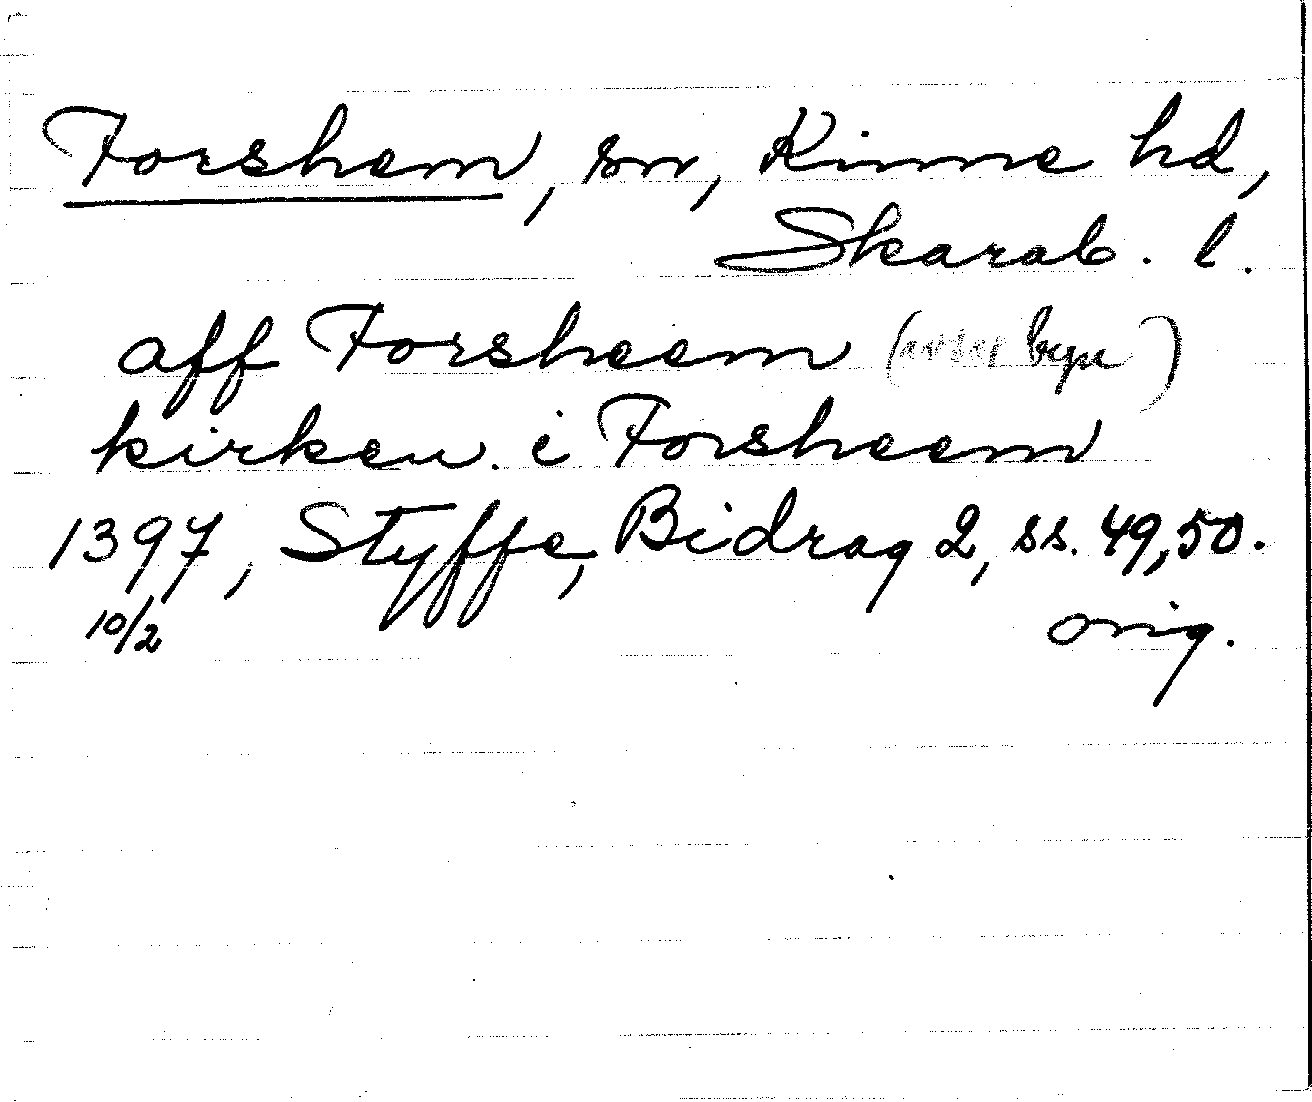 Forshem, sn, Kinne hd,
Skarab. l.
aff Forsheem (avser byn)
kirken i Forsheem
1397, Styffe, Bidrag 2, ss. 49,50.
10/2 orig.